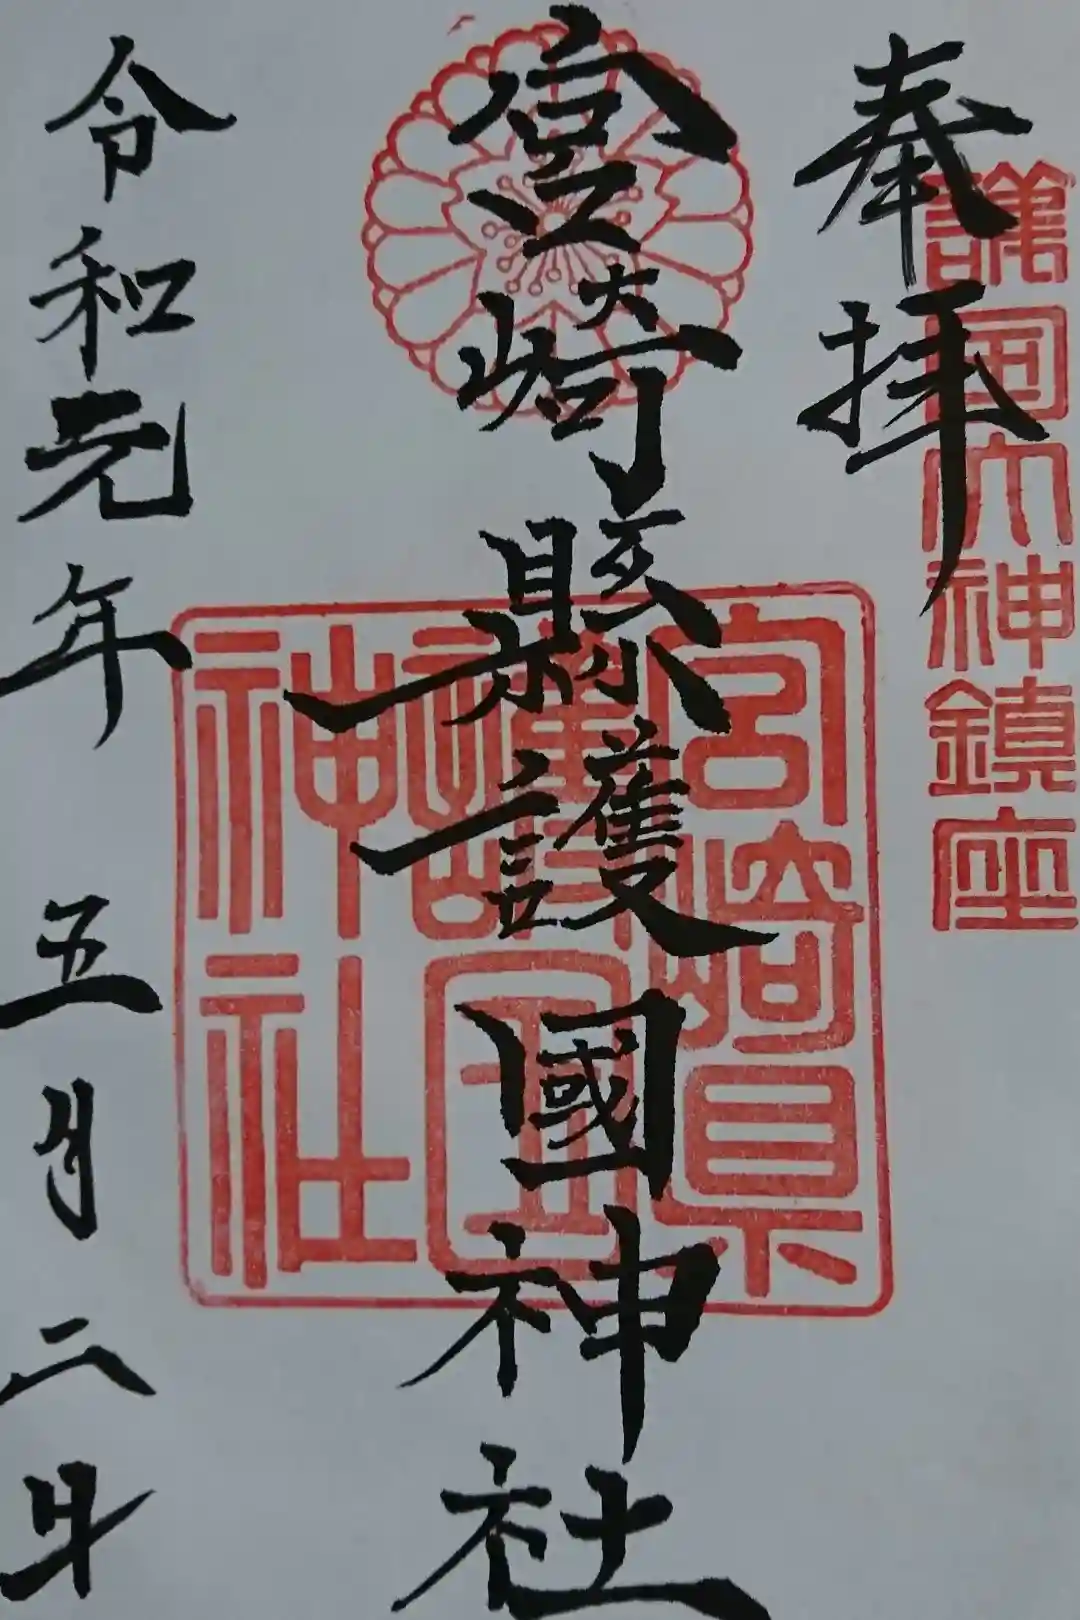 奉拝
護国大神鎮座
宮崎縣護國神社
宮崎県
護国
神社
令和元年 五月二日